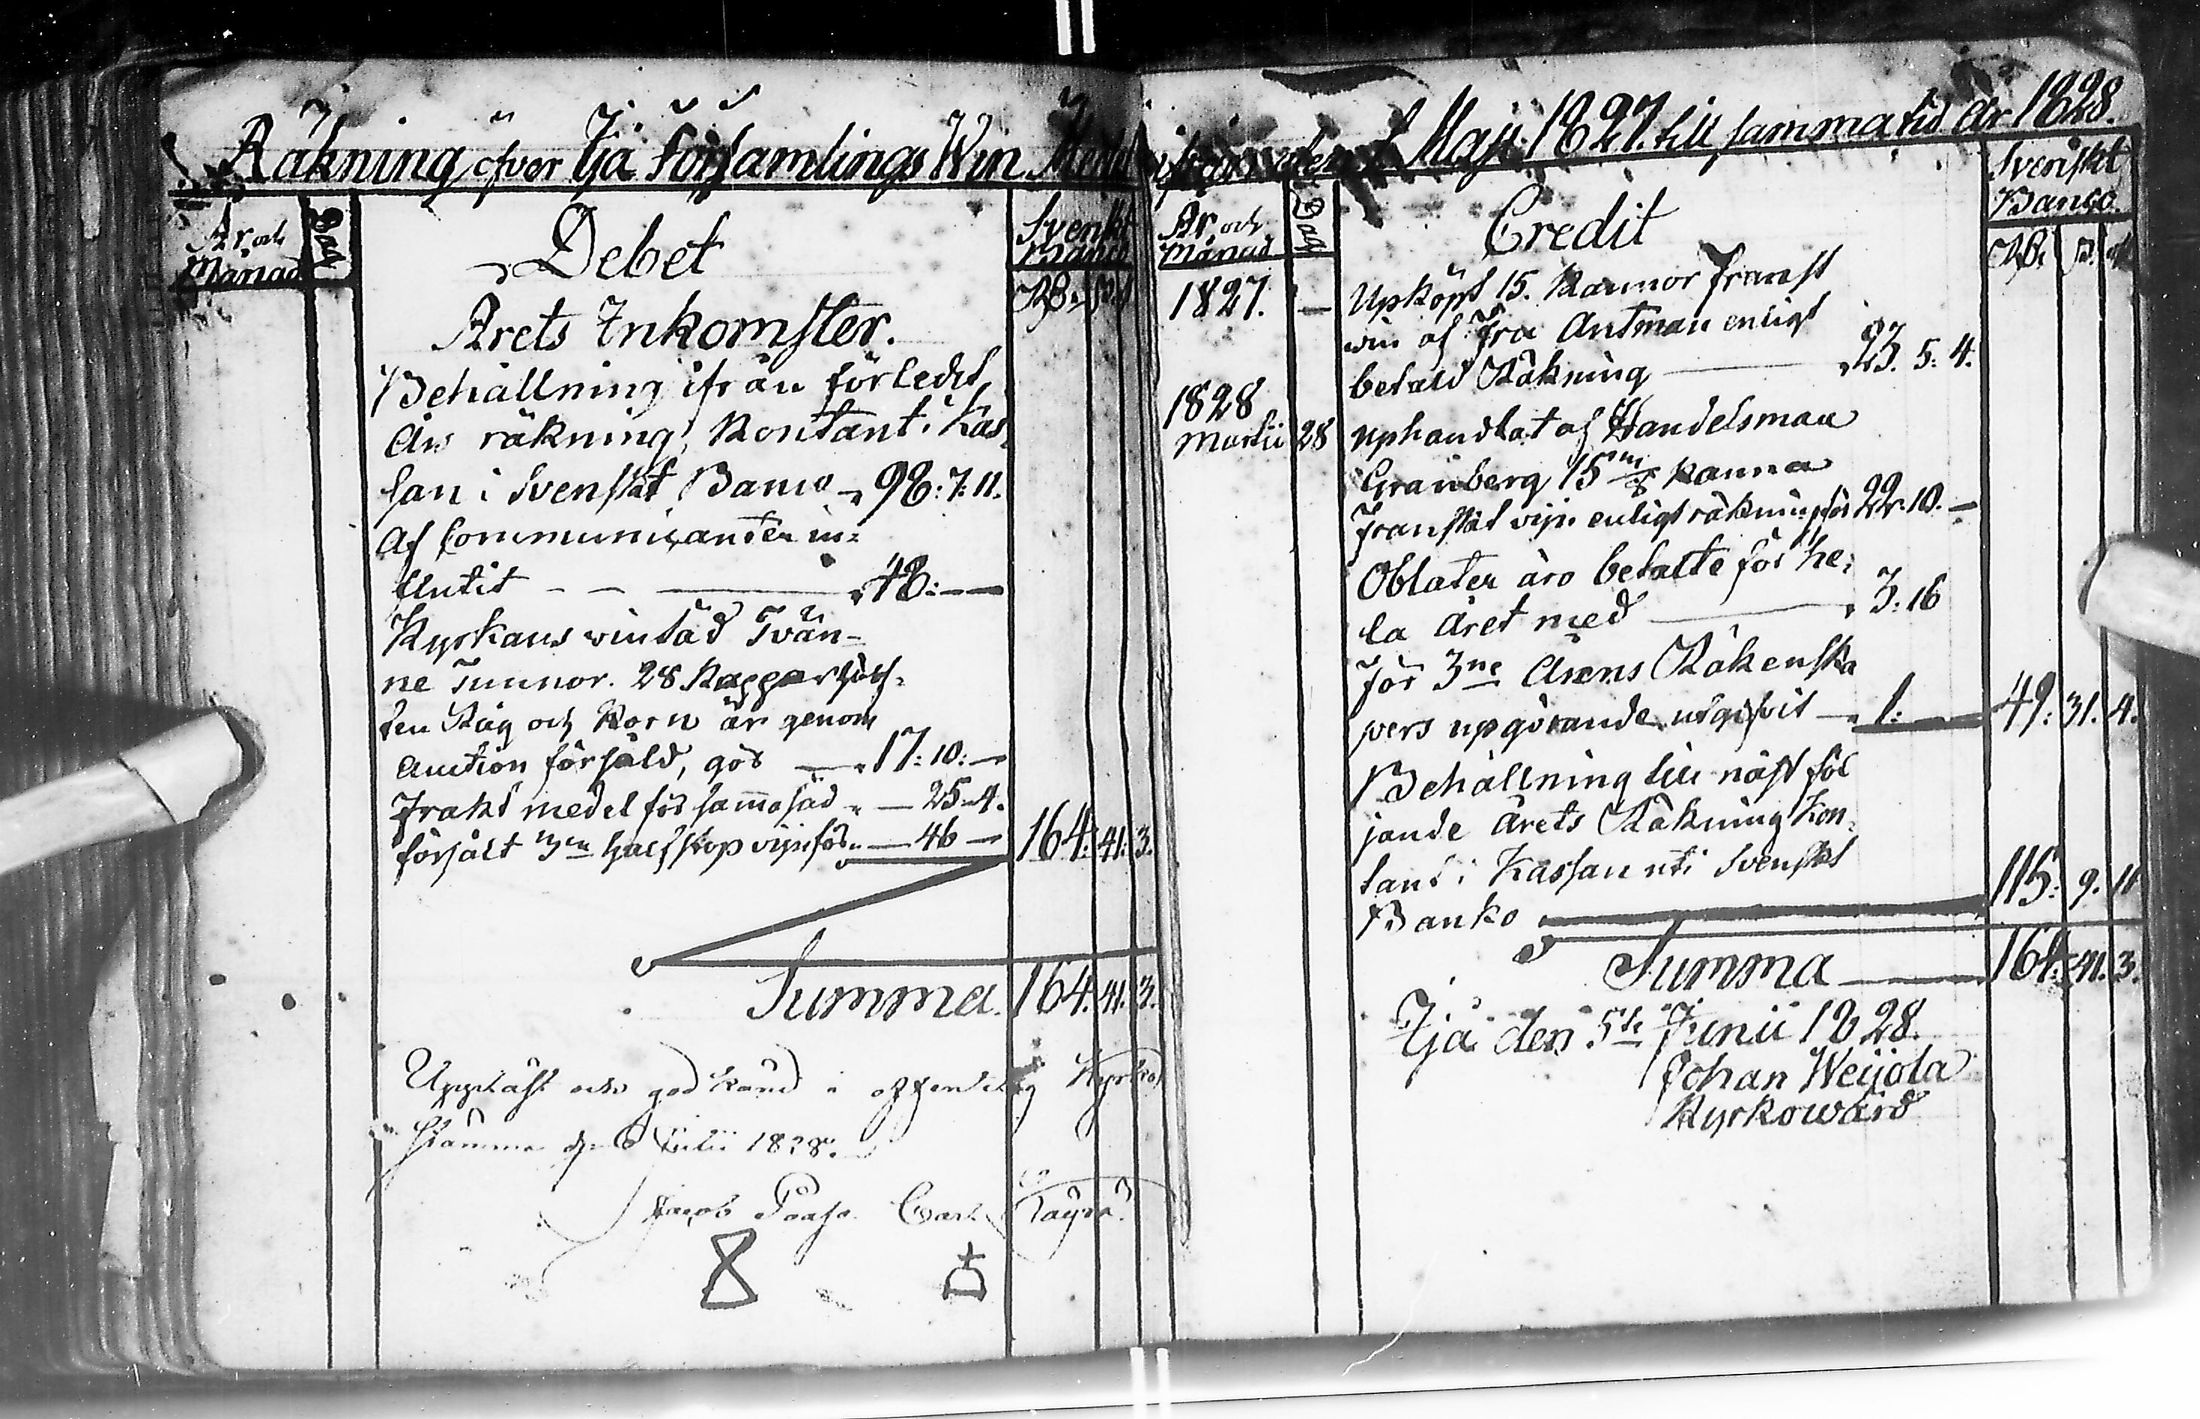 Räkning öfver Ijå Församlings Win Medel ifrån den 1 Maji 1827. till samma tid År 1828.
År och Månad
Dag
Debet
Svenskt Banco
Rd. s. r
Årets Inkomster.
Behållning ifrån förledit
års räkning, Kontant i Kas-
san i Svenskt Banco 98: 7: 11.
Af Communicanter in-
flutit 48: — —
Kyrkans vinsäd Tvän-
ne Tunnor. 28 Kappar
ten Råg och Korn är genom
Auction försåld, gör 17: 10: —
Frakt medel för samma säd „ — 25. 4.
försålt 3ne half stop vijn för „ — 46 — 164: 41: 3.
Summa. 164. 41. 3.
Uppläst och godkänd i offentelig Kyrko
Stämma d. 6 Julii 1828.
Jacob Paaso Carl Tayra
År och Månad
Dag
Credit
Svenskt
Banco.
Rd. s. r
1827. — Upköpt 15. Kannor Franst
win af Fru Antman enligt
betald Räkning 23. 5: 4.
1828
Martii 28 uphandlat af Handelsman
Granberg 15 Kanna
Franskt vijn enligt räkning för 22. 10. —
Oblater äro betalte för he-
la året med 3: 16
För 3ne Årens Räkenska
pers upgörande utgifvit 1: — 49: 31. 4.
Behållning till näst föl
jande årets Räkning Kon-
tant i Kassan uti Svenskt
Banko 115: 9. 11
Summa 164: 41. 3.
Ijå den 5te Junii 1828.
Johan Weijola
Kyrkowärd